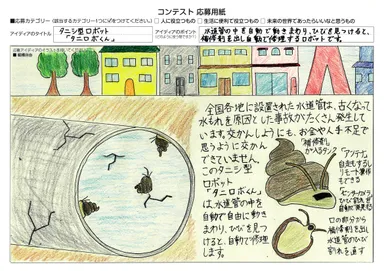 コンテスト 応募用紙
■応募カテゴリー(該当するカテゴリー1つに✓をつけてください。) □ 人に役立つもの □ 生活に便利で役立つもの □ 未来の世界であったらいいなと思うもの
アイデアのタイトル
タニシ型ロボット
「タニロボくん」
アイデアのポイント
水道管の中を自動で動きまわり、ひびを見つけると、
補修剤を出し自動で修理するロボットです。
全国各地に設置された水道管は、古くなって
水もれを原因とした事故がたくさん発生して
います。交かんしようにも、お金や人手不足で
思うように交かん
できていません。
このタニシ型
ロボット
「タニロボくん」
は、水道管の中を
自動で自由に動き
まわり、ひびを見つ
けると、自動で修理
します。
「補修剤」
が入るタンク
「アンテナ」
自走もするし
リモート操作
もできる
「センサーカメラ」
ひび割れを
自動で発見する
口の部分から
補修剤を出し
水道管のひび
割れを直す